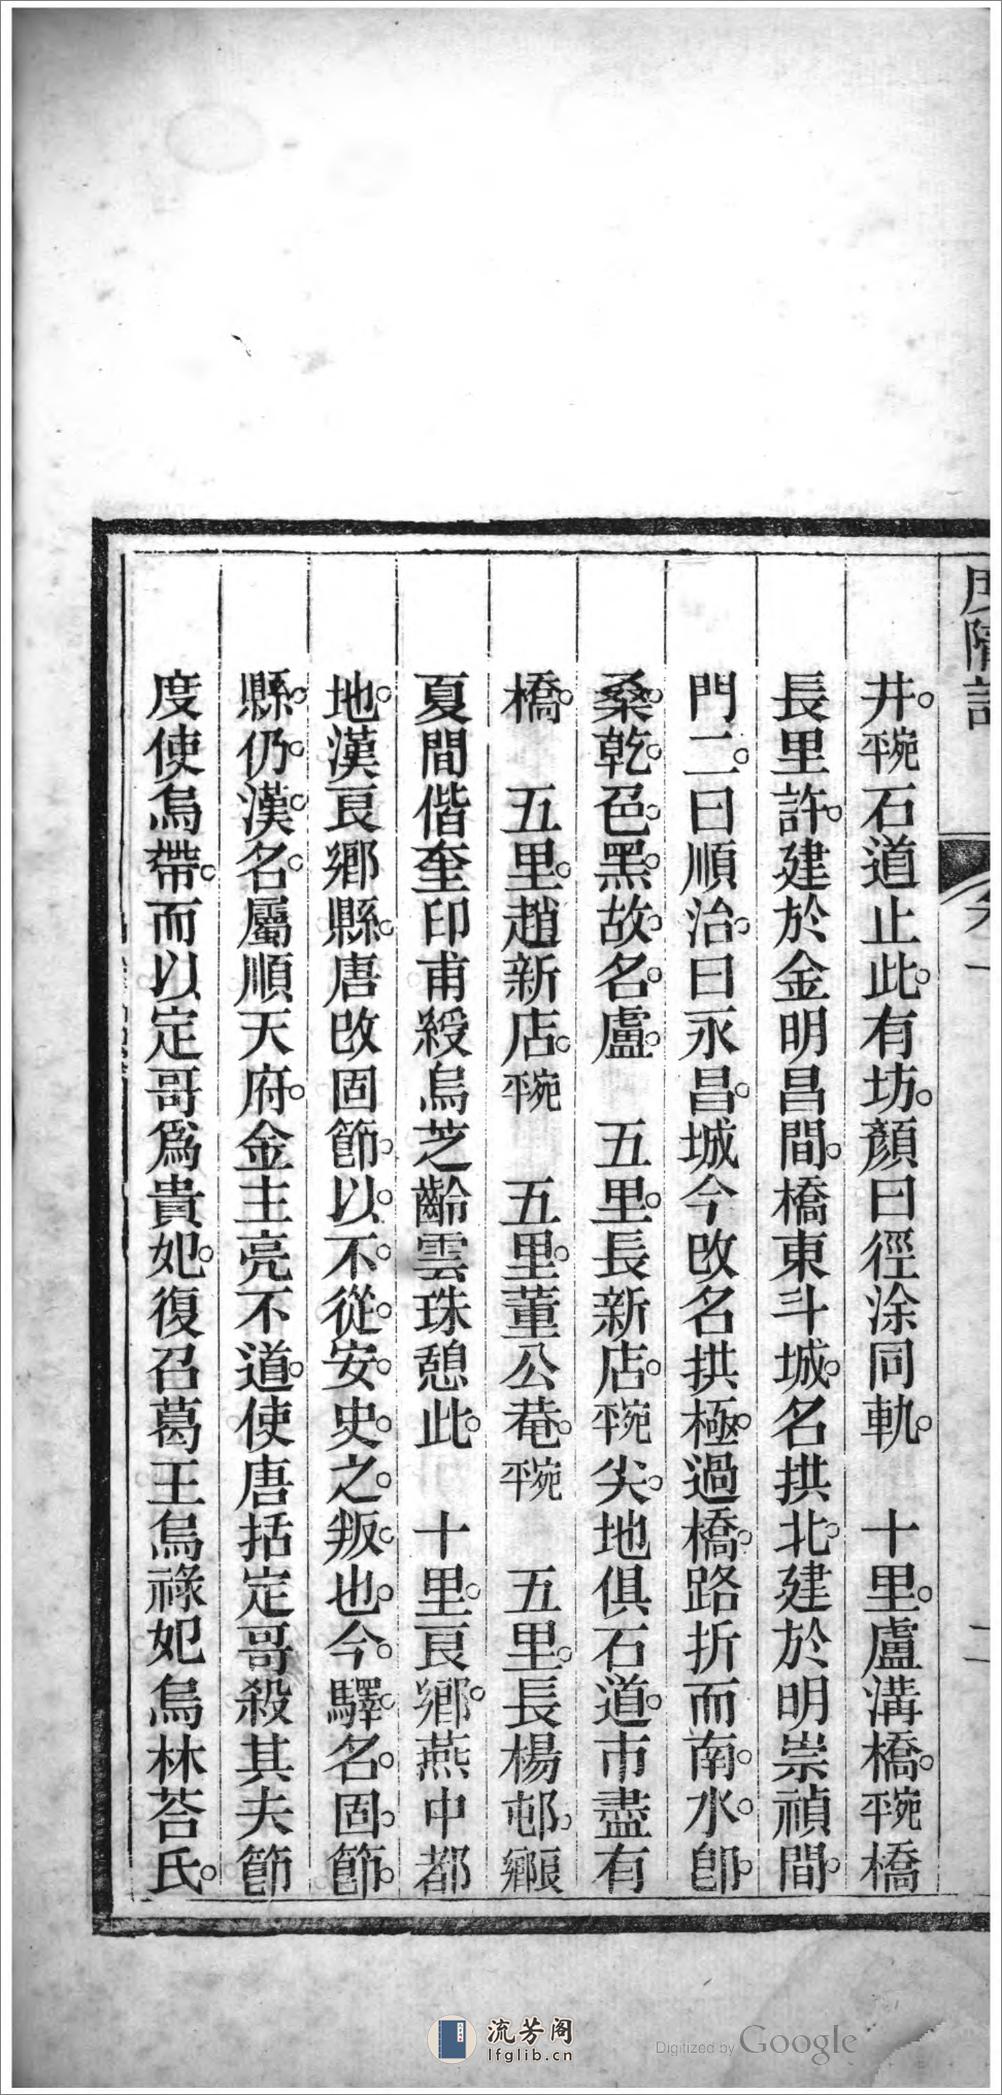 度隴記
卷一
二
井。宛平石道止此。有坊。顏曰徑涂同軌。　十里。盧溝橋。宛平橋
長里許。建於金明昌間。橋東斗城。名拱北。建於明崇禎間。
門二。曰順治。曰永昌。城今改名拱極。過橋。路折而南。水。卽。
桑。乾。色。黑。故。名。盧。　五里。長新店。宛平尖。地俱石道。市盡有
橋。　五里。趙新店。宛平　五里。董公菴。宛平　五里。長楊邨。良鄉
夏間偕奎印甫綬烏芝齡雲珠憩此。　十里。良鄉。燕中都
地。漢良鄉縣。唐改固節。以。不。從。安。史。之。叛。也。今。驛。名。固。節。
縣。仍。漢。名。屬順天府。金主亮不道。使唐括定哥殺其夫節
度使烏帶。而以定哥爲貴妃。復召葛王烏祿妃烏林荅氏。
流芳阁
lfglib.cn
Digitized by Google